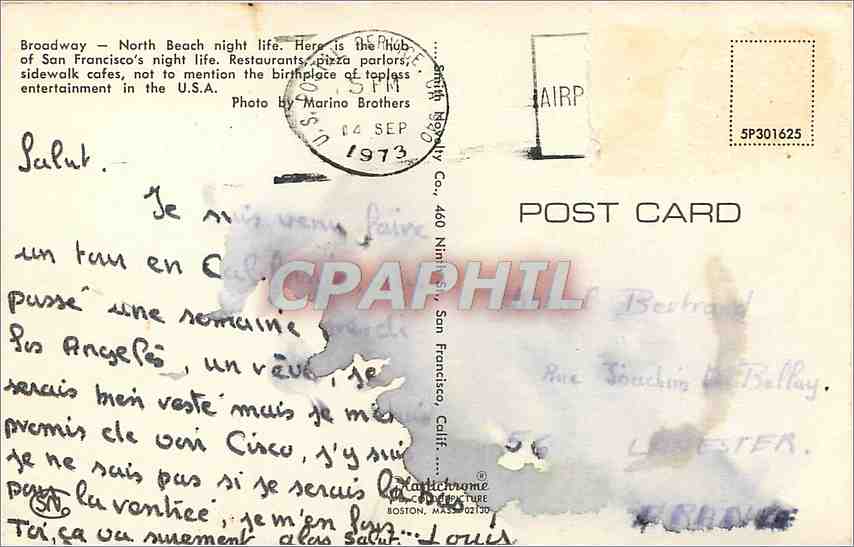 Broadway — North Beach night life. Here is the hub
of San Francisco's night life. Restaurants, pizza parlors,
sidewalk cafes, not to mention the birthplace of topless
entertainment in the U.S.A.
Photo by Marino Brothers
U.S. POSTAL SERVICE, CA 940
5 PM
14 SEP
1973
AIRP
5P301625
POST CARD
Smith Novelty Co., 460 Ninth St., San Francisco, Calif.
Salut.
Je suis venu faire
un tour en
passé une semaine
Los Angeles, un rêve, je
serais bien resté mais je m'
promis de voir Cisco, j'y suis
je ne sais pas si je serais là
pour la rentrée, je m'en fous...
Toi, ça va surement alors Salut. Louis
SN
Bertrand
Rue Joachim Du Bellay.
56 LANESTER.
FRANCE
CPAPHIL
Plastichrome®
COLORPICTURE
BOSTON, MASS. 02130